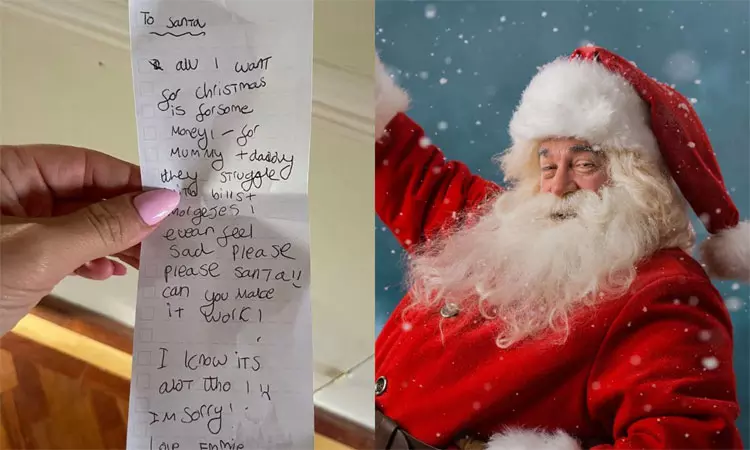 To santa
all I want
for christmas
is forsome
Money! - for
MUMMY + daddy
they struggle
bills +
morgejes !
evean feel
sad please
please santa!!
can you make
it work!
I know its
alot tho !
I'M Sorry!
Love Emmie